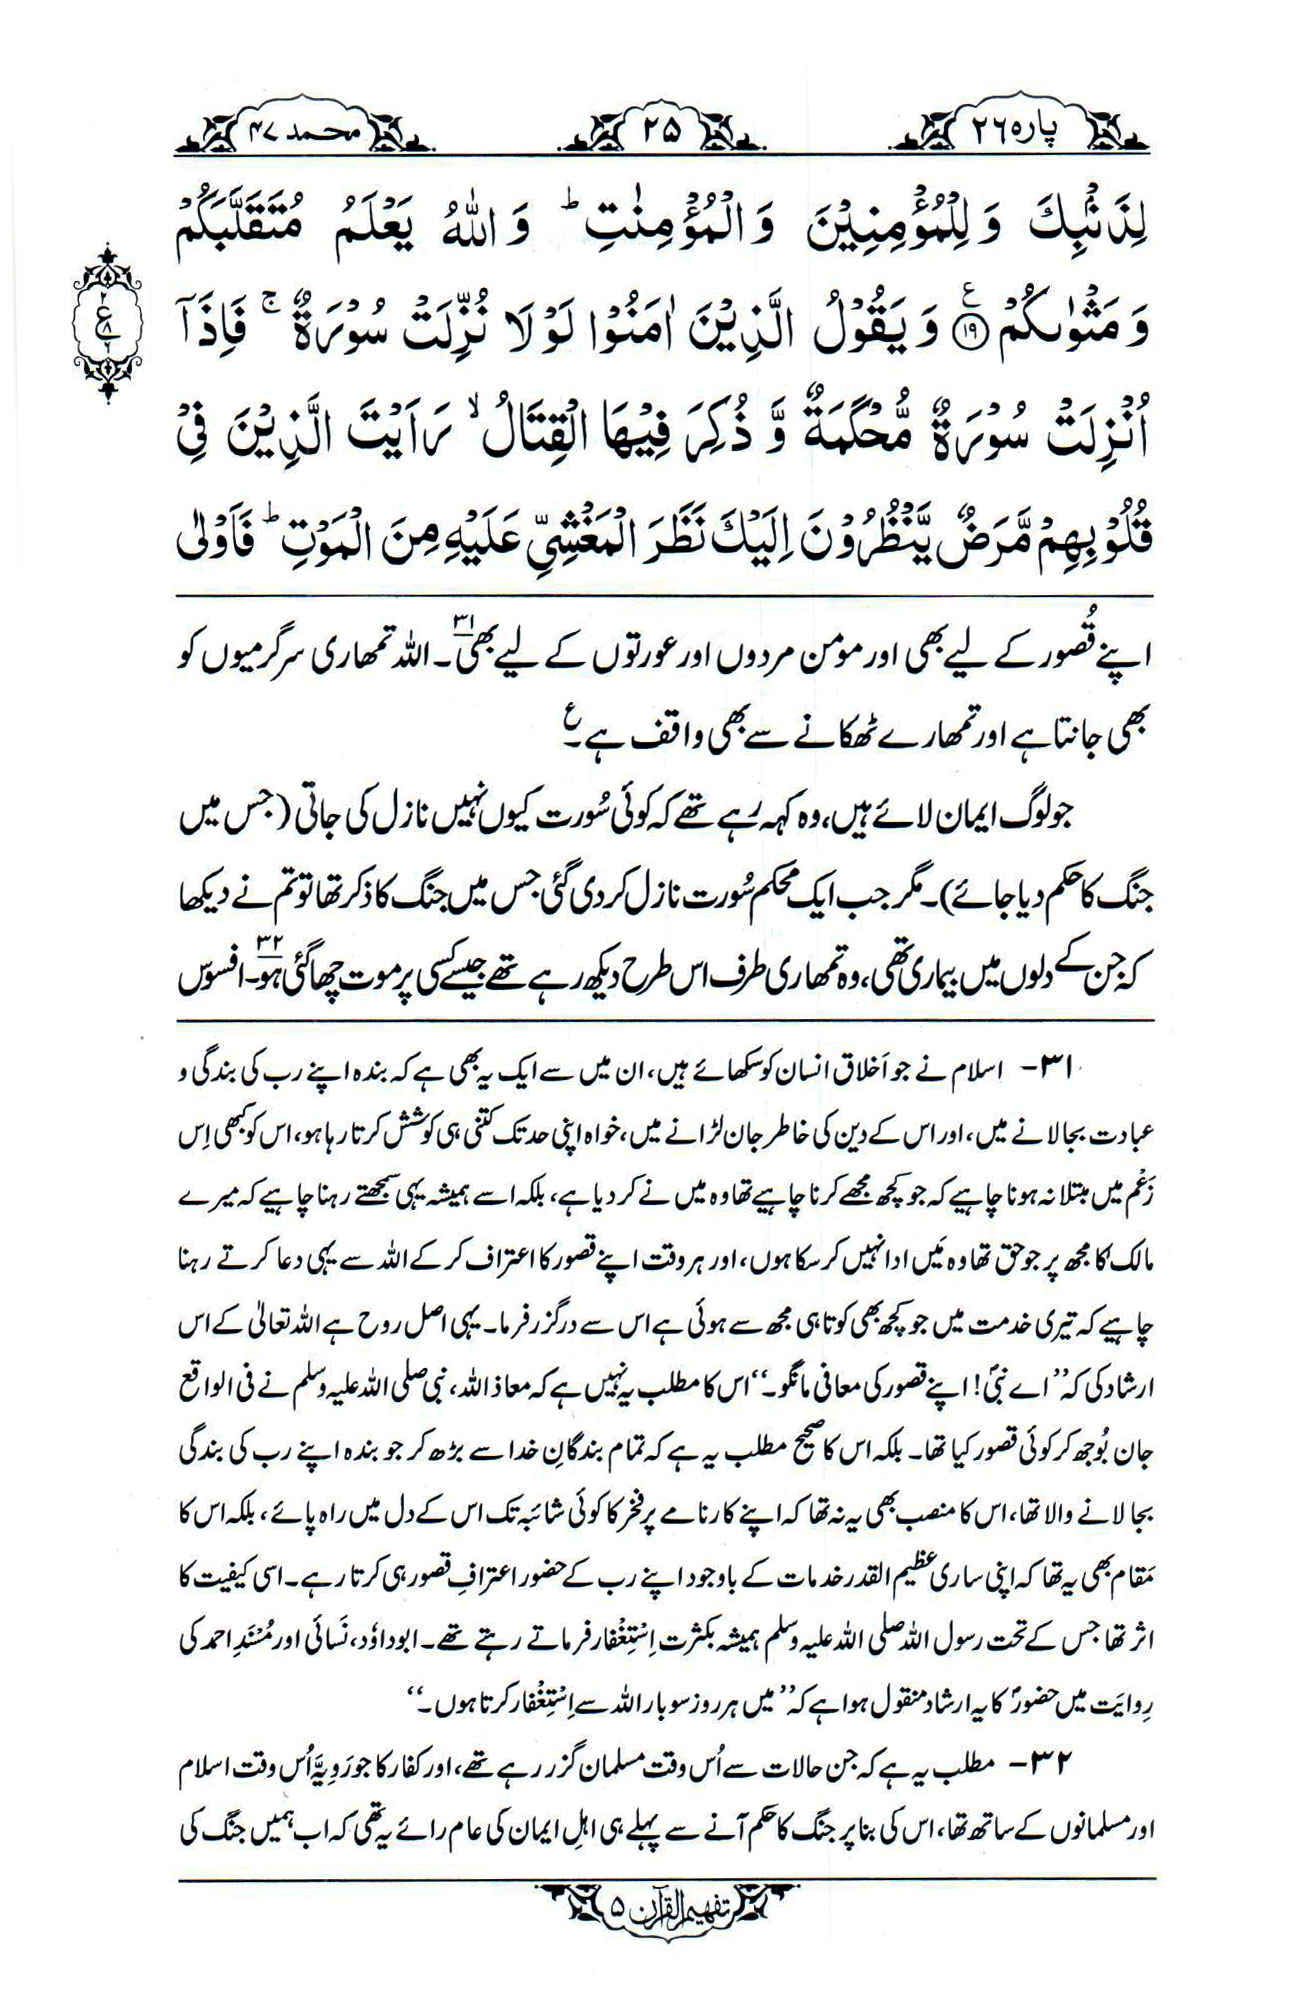 پارہ ۲۶
۲۵
محمد ۴۷
لِذَنْۢبِكَ وَ لِلْمُؤْمِنِيْنَ وَ الْمُؤْمِنٰتِ ؕ وَ اللّٰهُ يَعْلَمُ مُتَقَلَّبَكُمْ
وَ مَثْوٰىكُمْ ﴿۱۹﴾ ع وَ يَقُوْلُ الَّذِيْنَ اٰمَنُوْا لَوْ لَا نُزِّلَتْ سُوْرَةٌ ۚ فَاِذَاۤ
اُنْزِلَتْ سُوْرَةٌ مُّحْكَمَةٌ وَّ ذُكِرَ فِيْهَا الْقِتَالُ ۙ رَاَيْتَ الَّذِيْنَ فِيْ
قُلُوْبِهِمْ مَّرَضٌ يَّنْظُرُوْنَ اِلَيْكَ نَظَرَ الْمَغْشِيِّ عَلَيْهِ مِنَ الْمَوْتِ ؕ فَاَوْلٰى
۲
ع
۸
۶
اپنے قُصُور کے لیے بھی اور مومن مردوں اور عورتوں کے لیے بھی۳۱۔ اللہ تمھاری سرگرمیوں کو
بھی جانتا ہے اور تمھارے ٹھکانے سے بھی واقف ہے۔ ع
جو لوگ ایمان لائے ہیں، وہ کہہ رہے تھے کہ کوئی سُورت کیوں نہیں نازل کی جاتی (جس میں
جنگ کا حکم دیا جائے)۔ مگر جب ایک محکم سُورت نازل کر دی گئی جس میں جنگ کا ذکر تھا تو تم نے دیکھا
کہ جن کے دلوں میں بیماری تھی، وہ تمھاری طرف اس طرح دیکھ رہے تھے جیسے کسی پر موت چھا گئی ہو۳۲۔ افسوس
۳۱- اسلام نے جو اَخلاق انسان کو سکھائے ہیں، ان میں سے ایک یہ بھی ہے کہ بندہ اپنے رب کی بندگی و
عبادت بجا لانے میں، اور اس کے دین کی خاطر جان لڑانے میں، خواہ اپنی حد تک کتنی ہی کوشش کرتا رہا ہو، اس کو کبھی اِس
زَعْم میں مبتلا نہ ہونا چاہیے کہ جو کچھ مجھے کرنا چاہیے تھا وہ میں نے کر دیا ہے، بلکہ اسے ہمیشہ یہی سمجھتے رہنا چاہیے کہ میرے
مالک کا مجھ پر جو حق تھا وہ مَیں ادا نہیں کر سکا ہوں، اور ہر وقت اپنے قصور کا اعتراف کر کے اللہ سے یہی دعا کرتے رہنا
چاہیے کہ تیری خدمت میں جو کچھ بھی کوتاہی مجھ سے ہوئی ہے اس سے درگزر فرما۔ یہی اصل روح ہے اللہ تعالیٰ کے اس
ارشاد کی کہ ”اے نبیؐ! اپنے قصور کی معافی مانگو۔“ اس کا مطلب یہ نہیں ہے کہ معاذ اللہ، نبی صلی اللہ علیہ وسلم نے فی الواقع
جان بُوجھ کر کوئی قصور کیا تھا۔ بلکہ اس کا صحیح مطلب یہ ہے کہ تمام بندگانِ خدا سے بڑھ کر جو بندہ اپنے رب کی بندگی
بجا لانے والا تھا، اس کا منصب بھی یہ نہ تھا کہ اپنے کارنامے پر فخر کا کوئی شائبہ تک اس کے دل میں راہ پائے، بلکہ اس کا
مَقام بھی یہ تھا کہ اپنی ساری عظیم القدر خدمات کے باوجود اپنے رب کے حضور اعترافِ قصور ہی کرتا رہے۔ اسی کیفیت کا
اثر تھا جس کے تحت رسول اللہ صلی اللہ علیہ وسلم ہمیشہ بکثرت اِسْتِغْفار فرماتے رہتے تھے۔ ابوداؤد، نَسائی اور مُسْنَدِ احمد کی
رِوایَت میں حضورؐ کا یہ ارشاد منقول ہوا ہے کہ ”میں ہر روز سو بار اللہ سے اِسْتِغْفار کرتا ہوں۔“
۳۲- مطلب یہ ہے کہ جن حالات سے اُس وقت مسلمان گزر رہے تھے، اور کفار کا جو رَوِیَّہ اُس وقت اسلام
اور مسلمانوں کے ساتھ تھا، اس کی بنا پر جنگ کا حکم آنے سے پہلے ہی اہلِ ایمان کی عام رائے یہ تھی کہ اب ہمیں جنگ کی
تفہیم القرآن ۵